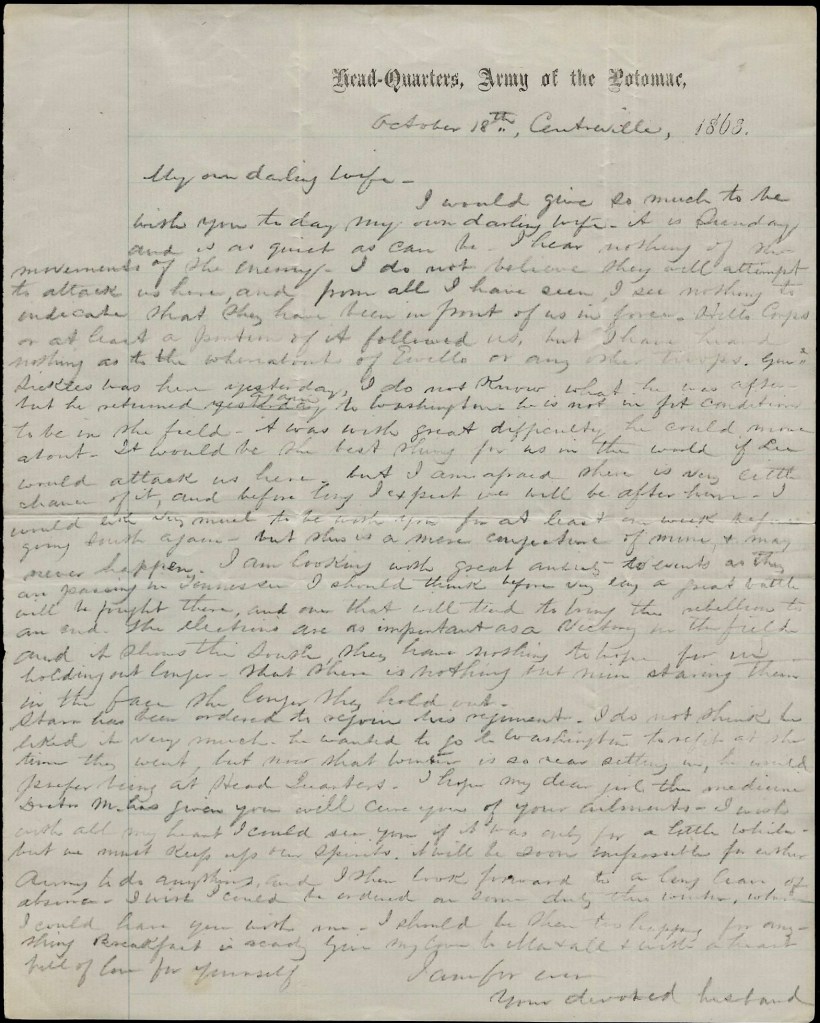 Head-Quarters, Army of the Potomac,
October 18th, Centreville, 1863.
My own darling wife -
I would give so much to be
with you today my own darling wife - it is Sunday
and is as quiet as can be - I hear nothing of the
movements of the Enemy - I do not believe they will attempt
to attack us here, and from all I have seen, I see nothing to
indicate that they have been in front of us in force - Hills Corps
or at least a portion of it followed us, but I have heard
nothing as to the whereabouts of Ewells or any other troops. Genl
Sickles was here yesterday, I do not know what he was after
but he returned yesterday to Washington - he is not in fit condition
to be in the field - it was with great difficulty he could move
about - It would be the best thing for us in the world if Lee
would attack us here, but I am afraid there is very little
chance of it, and before long I expect we will be after him - I
would like very much to be with you for at least one week before
going South again - but this is a mere conjecture of mine, & may
never happen. I am looking with great anxiety to events as they
are passing in Tennessee I should think before very long a great battle
will be fought there, and one that will tend to bring the rebellion to
an end. The elections are as important as a victory in the field
and it shows the South, they have nothing to hope for in
holding out longer - that there is nothing but ruin staring them
in the face the longer they hold out -
Starr has been ordered to rejoin his regiment - I do not think he
liked it very much - he wanted to go to Washington to refit at the
time they went, but now that winter is so near setting in, he would
prefer being at Head Quarters - I hope my dear girl the medicine
Doctor M. has given you will cure you of your ailments - I wish
with all my heart I could see you if it was only for a little while -
but we must keep up our spirits. it will be soon impossible for either
Army to do anything, and I then look forward to a long leave of
absence - I wish I could be ordered on some duty this winter, where
I could have you with me - I should be then too happy for any-
thing Breakfast is ready Give my love to & with a heart
full of love for yourself I am for ever
Your devoted husband